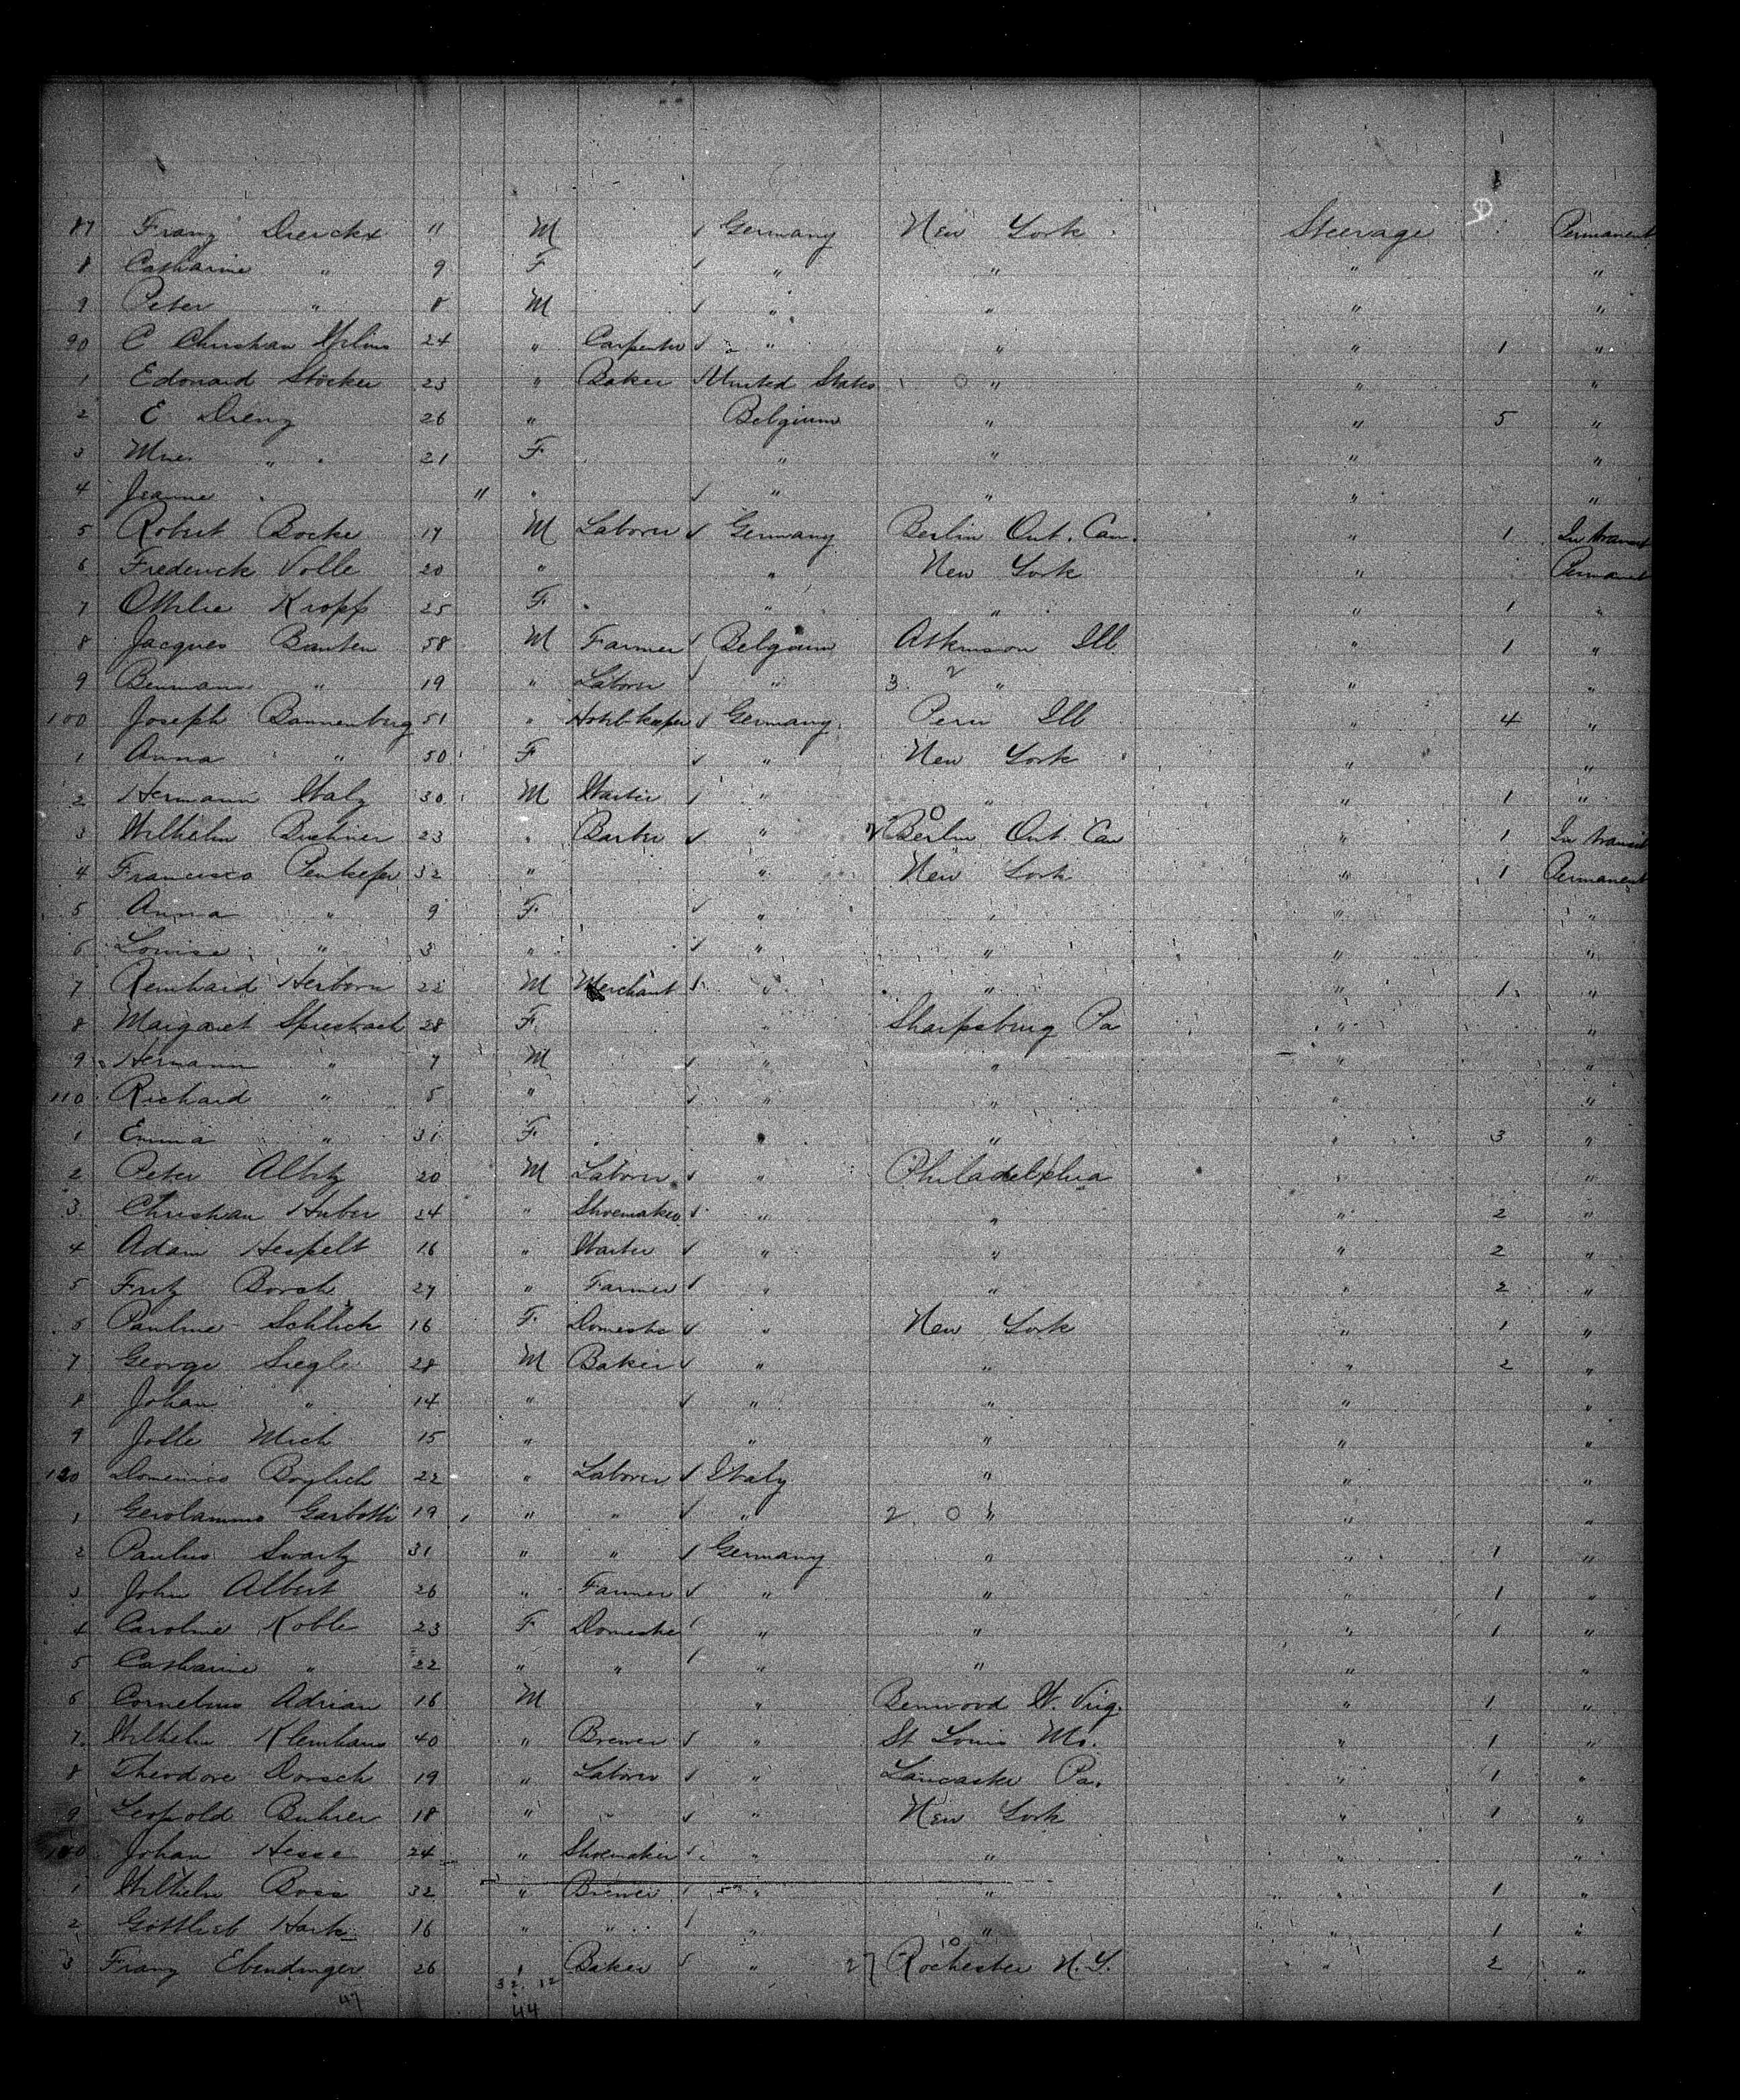 87 Franz Dierckx 11 M Germany New York Steerage Permanent
8 Catharine " 9 F " " " "
9 Peter " 8 M " " " "
90 C Christian 24 " Carpenter " " " 1 "
1 Edouard Stöcker 23 " Baker United States " " "
2 E Dieng 26 " Belgium " " 5 "
3 Mme " 21 F " " " "
4 Jeanne " 11 " " " " "
5 Robert Bocke 17 M Laborer Germany Berlin Ont. Can. " 1 In transit
6 Frederick Volle 20 " " New York " Permanent
7 Ottilie Kropp 25 F " " " 1 "
8 Jacques Bauten 58 M Farmer Belgium Atkinson Ill " 1 "
9 " 19 " Laborer " 3 " " "
100 Joseph Bannenberg 51 " Hotelkeeper Germany Peru Ill " 4 "
1 Anna " 50 F " New York " "
2 Hermann Walz 30 M Waiter " " " 1 "
3 Wilhelm 23 " " Berlin Ont. Can " 1 In transit
4 Francisco 32 " " New York " 1 Permanent
5 Anna " 9 F " " " "
6 Louise " 3 " " " " "
7 Reinhard Herborn 22 M Merchant " " " 1 "
8 Margaret 28 F " Sharpsburg Pa " "
9 Hermann " 7 M " " " "
110 Richard " 5 " " " " "
1 Emma " 31 F " " " 3 "
2 Peter 20 M Laborer " Philadelphia " "
3 Christian Huber 24 " Shoemaker " " " 2 "
4 Adam Hespelt 16 " Waiter " " " 2 "
5 Fritz Borsh 27 " Farmer " " " 2 "
6 Pauline Schlich 16 F Domestic " New York " 1 "
7 George Siegle 28 M Baker " " " 2 "
8 Johan " 14 " " " " "
9 Mich 15 " " " " "
120 Domenico 22 " Laborer Italy " " "
1 Gerolammo Garbotti 19 " " " 2 0 " " "
2 Paulus Swartz 31 " " Germany " " 1 "
3 John Albert 26 " Farmer " " " 1 "
4 Caroline Koble 23 F Domestic " " " 1 "
5 Catharine " 22 " " " " " "
6 Cornelius Adrian 16 M " Benwood W. Virg. " 1 "
7 Wilhelm Kleinhaus 40 " Brewer " St Louis Mo. " 1 "
8 Theodore Dorsch 19 " Laborer " Lancaster Pa. " 1 "
9 Leopold Buhrer 18 " " " New York " 1 "
130 Johan Hesse 24 " Shoemaker " " " "
1 Wilhelm Boss 32 " Brewer " " " 1 "
2 Gottlieb Hark 16 " " " " " 1 "
3 Franz Ebendinger 26 " Baker " 27 Rochester N.Y. " 2 "
47 32 12
44